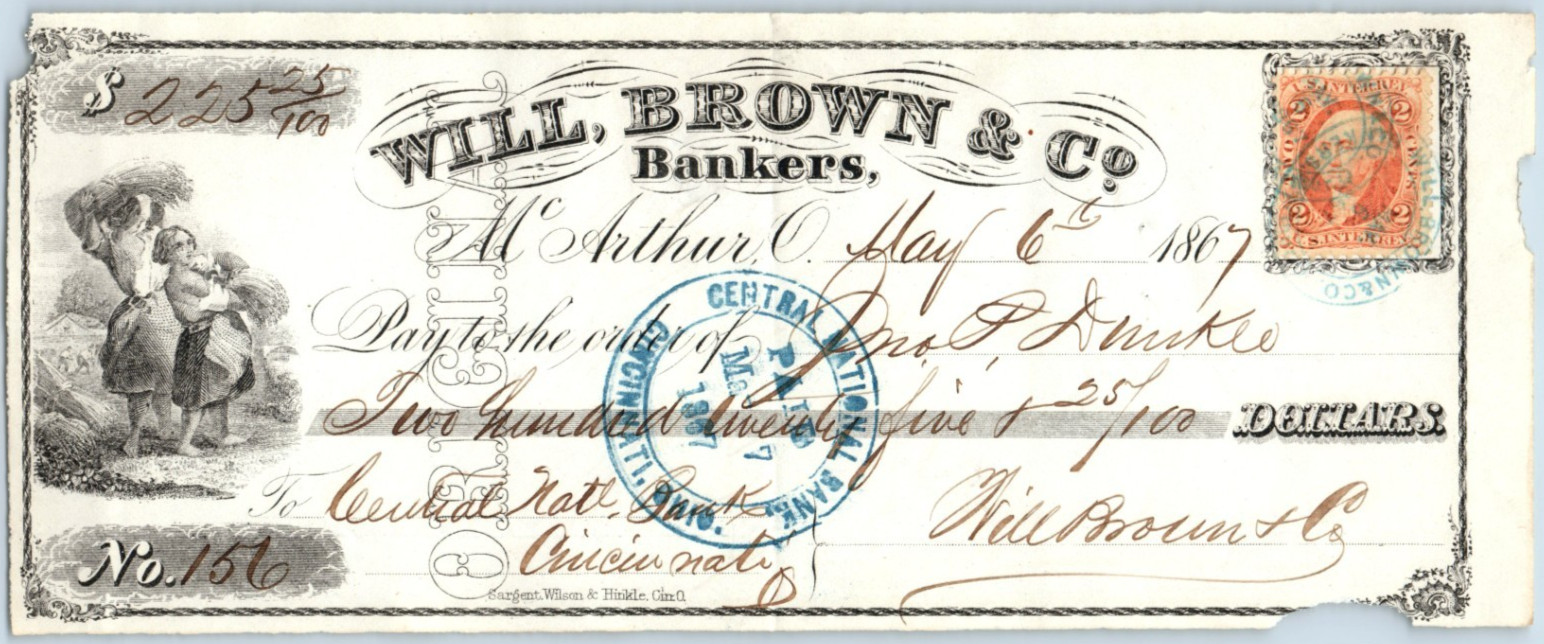 $ 225 25/100
WILL, BROWN & Co
Bankers,
Mc Arthur, O. May 6th 1867
ORIGINAL
Pay to the order of Jno. P. Dunkle
Two hundred twenty five & 25/100 DOLLARS.
To Central Natl. Bank
Cincinnati
Will Brown & Co
No. 156
Sargent, Wilson & Hinkle, Cin. O.
U.S. INTER. REV.
2 2
TWO CENTS
2 2
U.S. INTER. REV.
WILL BROWN & CO
CENTRAL NATIONAL BANK,
CINCINNATI, OHIO.
PAID
May 7
1867